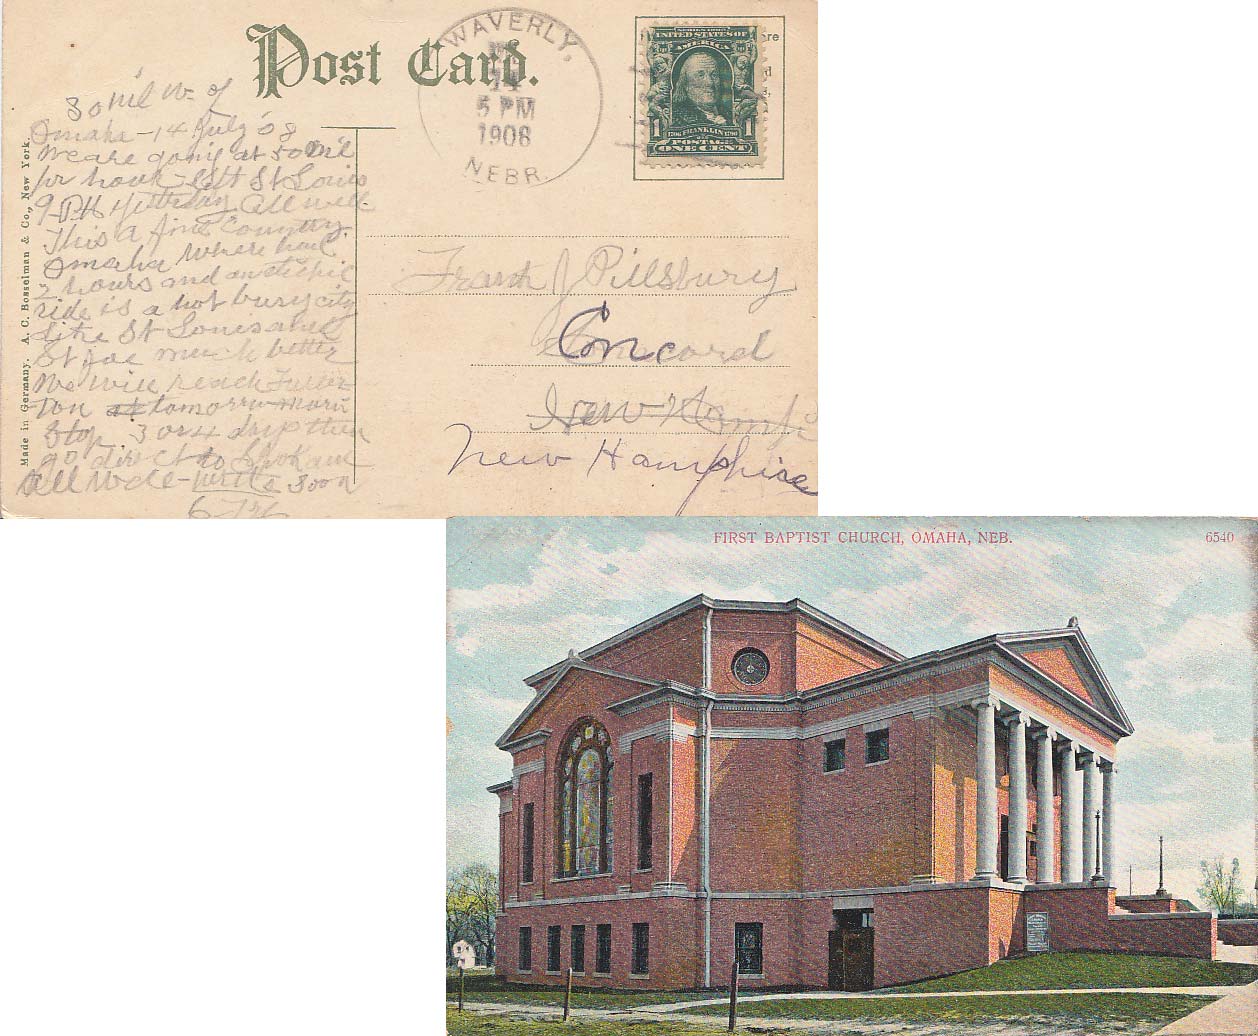 Post Card.
WAVERLY,
14
5 PM
1908
NEBR.
SERIES 1902
UNITED STATES OF
AMERICA
1 1706 FRANKLIN 1790 1
POSTAGE
ONE CENT
Made in Germany. A. C. Bosselman & Co., New York.
80 Mil W. of
Omaha - 14 July '08
We are going at 50 Mil
pr hour - left St Louis
9-PM yesterday All well.
This a fine Country.
Omaha where had
2 hours and an
ride is a hot busy city
like St Louis
St Joe much better
We will reach Fuller-
ton at tomorrow morn
Stop 3 or 4 days then
go direct to Spokane
All well - write soon
Frank J Pillsbury
Concord
New Hamp
New Hampshire
FIRST BAPTIST CHURCH, OMAHA, NEB.
6540